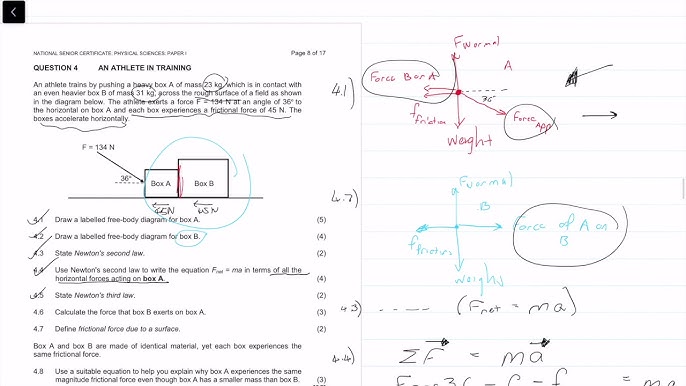 NATIONAL SENIOR CERTIFICATE: PHYSICAL SCIENCES: PAPER I
Page 8 of 17
QUESTION 4 AN ATHLETE IN TRAINING
An athlete trains by pushing a heavy box A of mass 23 kg, which is in contact with
an even heavier box B of mass 31 kg, across the rough surface of a field as shown
in the diagram below. The athlete exerts a force F = 134 N at an angle of 36° to
the horizontal on box A and each box experiences a frictional force of 45 N. The
boxes accelerate horizontally.
F = 134 N
36°
Box A
Box B
45N
45N
4.1 Draw a labelled free-body diagram for box A. (5)
4.2 Draw a labelled free-body diagram for box B. (4)
4.3 State Newton's second law. (2)
4.4 Use Newton's second law to write the equation Fnet = ma in terms of all the
horizontal forces acting on box A. (4)
4.5 State Newton's third law. (2)
4.6 Calculate the force that box B exerts on box A. (5)
4.7 Define frictional force due to a surface. (2)
Box A and box B are made of identical material, yet each box experiences the
same frictional force.
4.8 Use a suitable equation to help you explain why box A experiences the same
magnitude friction force even though box A has a smaller mass than box B. (3)
4.1)
FNormal
A
Force B on A
36°
Force App
f friction
Weight
4.2)
FNormal
B
Force of A on
B
f friction
weight
4.3) ----- (Fnet = ma)
4.4) ΣF = ma